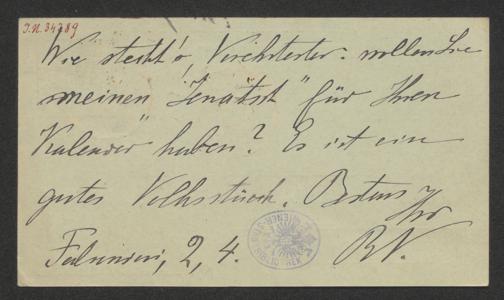 J.N. 34789
Wie steht's, Verehrtester. wollen Sie
meinen "Jenatsch" für Ihren
Kalender haben? Es ist ein
gutes Volksstück. Bestens
Ihr
2, 4. RV.